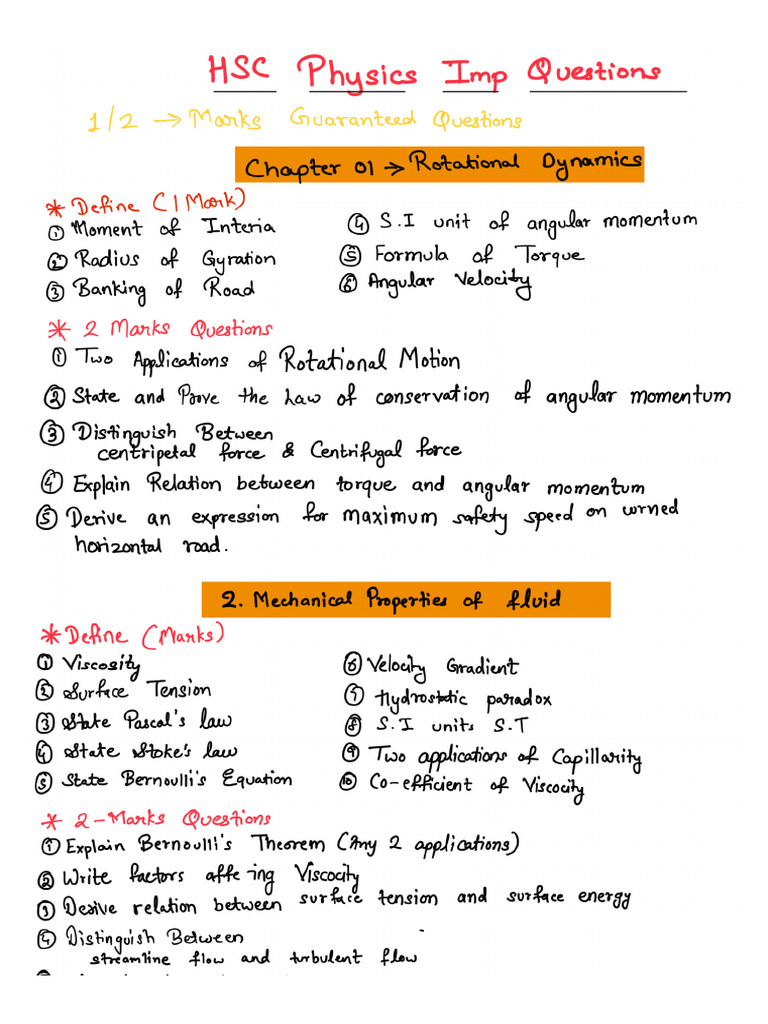 HSC Physics Imp Questions
1/2 → Marks Guaranteed Questions
Chapter 01 → Rotational Dynamics
* Define (1 Mark)
① Moment of Interia
② Radius of Gyration
③ Banking of Road
④ S.I unit of angular momentum
⑤ Formula of Torque
⑥ Angular Velocity
* 2 Marks Questions
① Two Applications of Rotational Motion
② State and Prove the Law of conservation of angular momentum
③ Distinguish Between
centripetal force & Centrifugal force
④ Explain Relation between torque and angular momentum
⑤ Derive an expression for maximum safety speed on
horizontal road.
2. Mechanical Properties of fluid
* Define (Marks)
① Viscosity
② Surface Tension
③ State Pascal's law
④ State Stoke's law
⑤ State Bernoulli's Equation
⑥ Velocity Gradient
⑦ Hydrostatic paradox
⑧ S.I units S.T
⑨ Two applications of Capillarity
⑩ Co-efficient of Viscocity
* 2-Marks Questions
① Explain Bernoulli's Theorem (Any 2 applications)
② Write factors affe ing Viscocity
③ Desive relation between surface tension and surface energy
④ Distinguish Between
streamline flow and turbulent flow